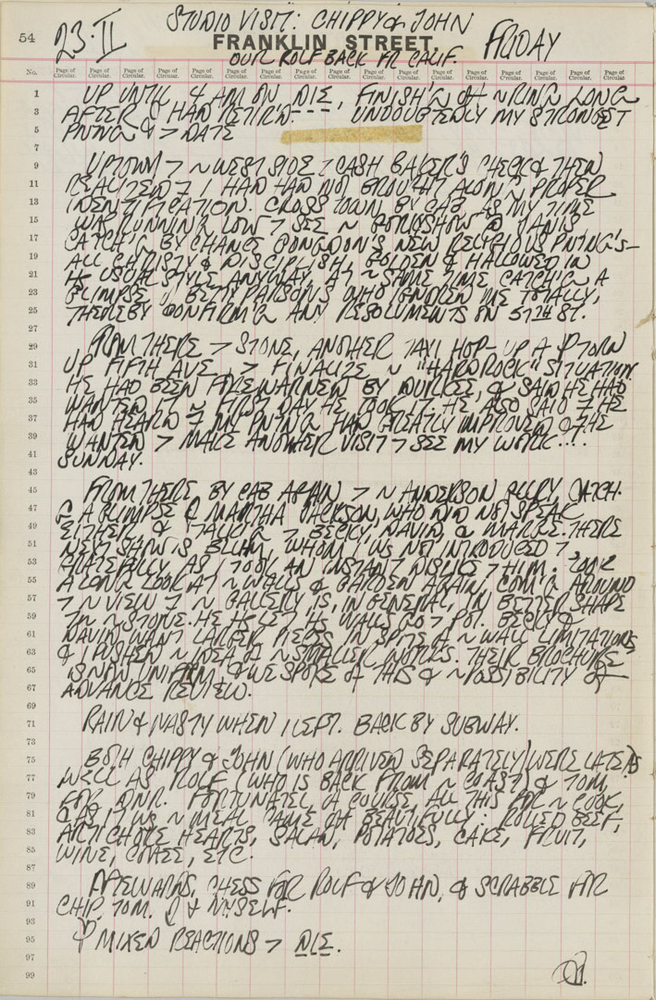 54
STUDIO VISIT: CHIPPY & JOHN
23·II FRANKLIN STREET. FRIDAY
OUR ROLF BACK FR CALIF.
No. Page of Circular. Page of Circular. Page of Circular. Page of Circular. Page of Circular. Page of Circular. Page of Circular. Page of Circular. Page of Circular. Page of Circular. Page of Circular. Page of Circular. Page of Circular. Page of Circular. Page of Circular.
UP UNTIL 4 AM ON DIE, FINISH'G LONG
AFTER HAD RETIRD--- UNDOUBTEDLY MY STRONGEST
PNTNG > DATE
UPTOWN > ~ WEST SIDE CASH BAKER'S CHECK & THEN
REALIZED I HAD HAD NOT BROUGHT ALONG PROPER
IDENTIFICATION. CROSS TOWN BY CAB AS MY TIME
WAS RUNNING LOW > SEE ~ @ JANIS
CATCH'G BY CHANCE CONGDON'S NEW RELIGIOUS PNTNG'S-
ALL CHRISTY & GOLDEN & HALLOWED IN
HIS USUAL STYLE ANYWAY. AT ~ SAME TIME CATCH'G A
GLIMPSE BETTY PARSONS WHO IGNORED ME TOTALLY,
THEREBY CONFIRM'G ANY ON 57TH ST.
FROM THERE > STONE, ANOTHER TAXI HOP UP A
UP FIFTH AVE > FINALIZE ~ "HARD ROCK" SITUATION.
HE HAD BEEN FOREWARNED BY & SAID HE HAD
WANTED IT ~ FIRST DAY HE HE ALSO SAID HE
HAD HEARD MY PNTNG HAD GREATLY IMPROVED & HE
WANTED > MAKE ANOTHER VISIT > SEE MY WORK....
SUNDAY.
FROM THERE BY CAB AGAIN > ~ ANDERSON GLLRY, CATCH-
G A GLIMPSE MARTHA JACKSON, WHO DID NOT SPEAK
EITHER, & TALK'G > BECKY, DAVID, & THERE
NEXT SHOW IS BLUM, WHOM I WS NOT INTRODUCED >
GRATEFULLY, AS I TOOK AN INSTANT DISLIKE > HIM. TOOK
A LONG LOOK AT ~ WALLS & GARDEN AGAIN, COM'G AROUND
> ~ VIEW ~ GALLERY IS, IN GENERAL, IN BETTER SHAPE
~ STONE. HE HS LET HS WALLS GO > POT. BECKY &
DAVID WANT LARGER PIECES IN SPITE ~ WALL LIMITATIONS
& I PUSHED ~ IDEA ~ SMALLER THEIR BROCHURE
IS NOW UNIFORM, & WE SPOKE THIS & ~ POSSIBILITY
ADVANCE REVIEW.
RAIN & NASTY WHEN I LEFT. BACK BY SUBWAY.
BOTH CHIPPY & JOHN (WHO ARRIVED SEPARATELY) WERE LATE AS
WELL AS ROLF (WHO IS BACK FROM ~ COAST) & TOM
FOR DNR. FORTUNATEL COURSE, ALL THIS FOR ~ COOK,
AS IT WS ~ MEAL CAME BEAUTIFULLY: ROLLED BEEF,
ARTICHOKE HEARTS, SALAD, POTATOES, CAKE, FRUIT,
WINE, COFFEE, ETC.
AFTEWARDS, CHESS FOR ROLF & JOHN, & SCRABBLE FOR
CHIP, TOM, & MYSELF.
MIXED REACTIONS > DIE.